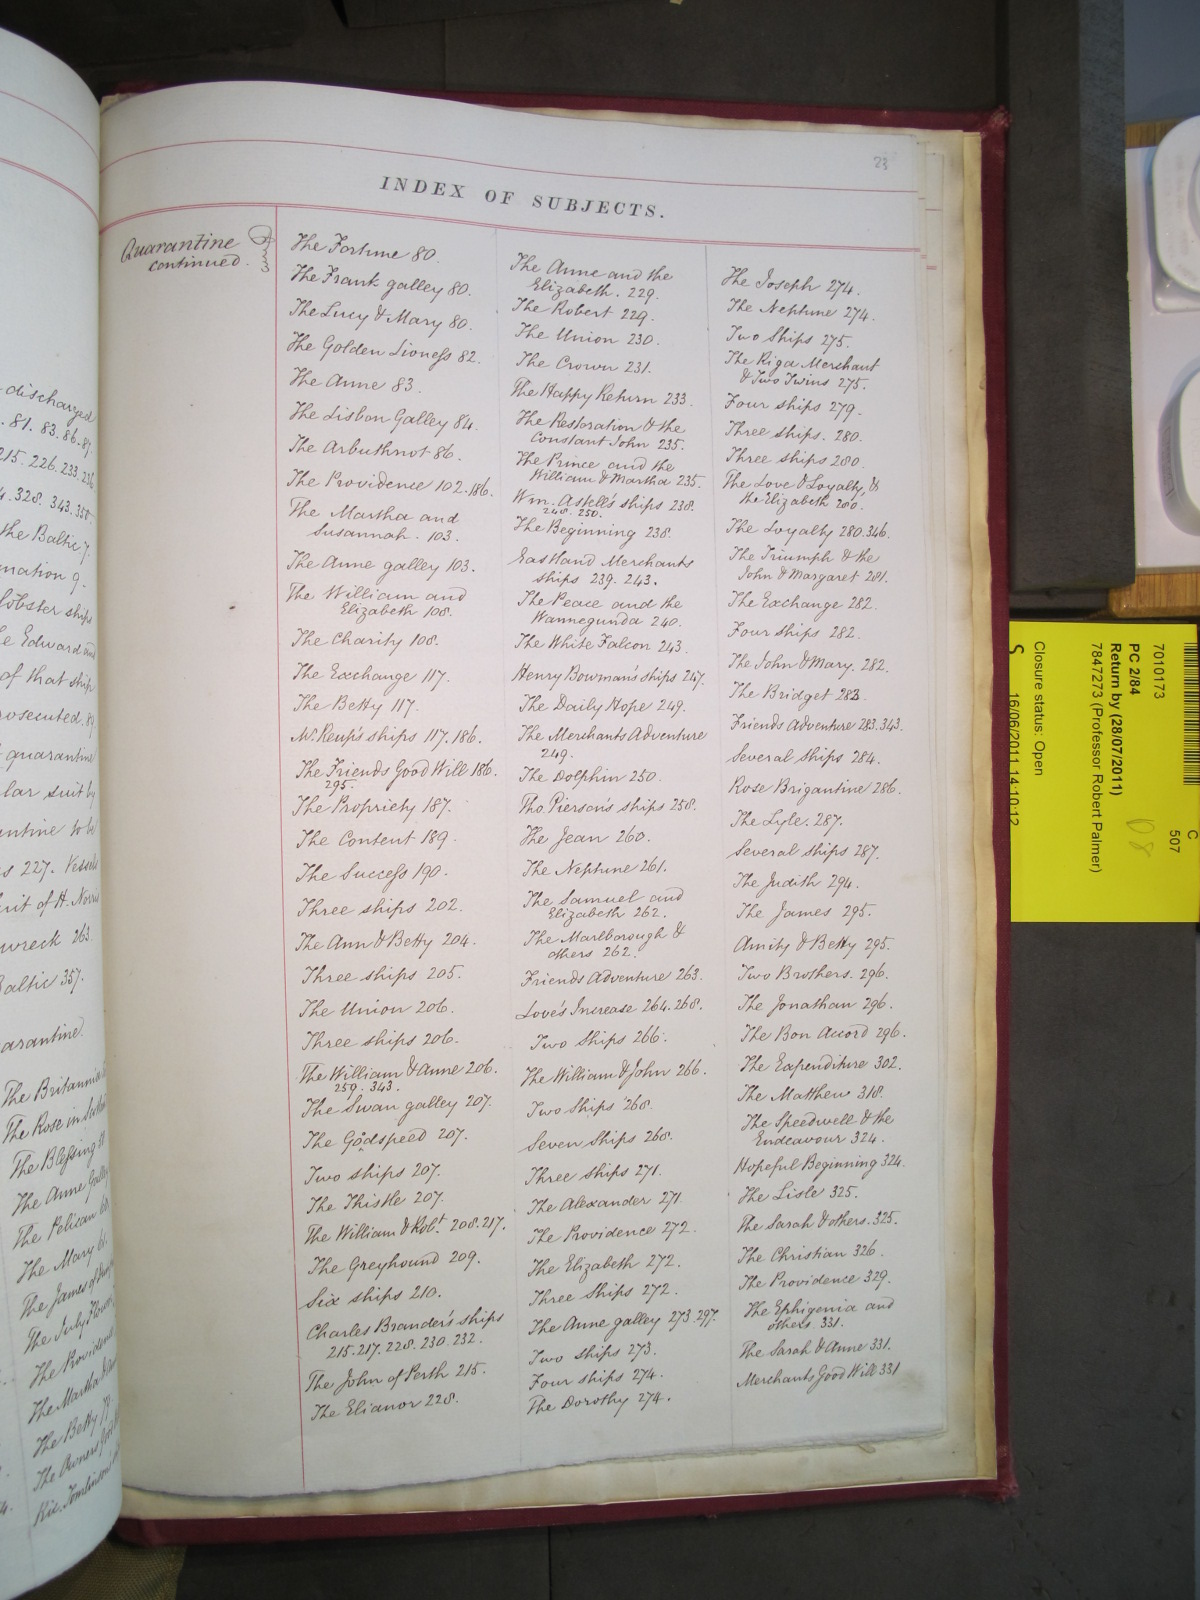 discharged
81. 83. 86. 87.
215. 226. 233. 236
328. 343. 350.
the Baltic 7.
lobster ships
Edward and
of that ship
prosecuted. 89
quarantine
suit by
to be
227. Vessels
of H. Norris
wreck 263.
Baltic 357.
The Britannia
The Rose in
The Blessing
The Anne Galley
The Pelican
The Mary
The James of
The July Flower
The Providence
The Martha
The Betty
The Owners
Ric. Tomlinson's
23
INDEX OF SUBJECTS.
Quarantine
continued.
The Fortune 80.
The Frank galley 80.
The Lucy & Mary 80.
The Golden Lioness 82.
The Anne 83.
The Lisbon Galley 84.
The Arbuthnot 86.
The Providence 102. 186.
The Martha and
Susannah. 103.
The Anne galley 103.
The William and
Elizabeth 108.
The Charity 108.
The Exchange 117.
The Betty 117.
Mr. Reup's ships 117. 186.
The Friends Good Will 186.
295.
The Propriety 187.
The Content 189.
The Success 190.
Three ships 202.
The Ann & Betty 204.
Three ships 205.
The Union 206.
Three ships 206.
The William & Anne 206.
259. 343.
The Swan galley 207.
The Godspeed 207.
Two ships 207.
The Thistle 207.
The William & Robt. 208. 217.
The Greyhound 209.
Six ships 210.
Charles Brander's ships
215. 217. 228. 230. 232.
The John of Perth 215.
The Elianor 228.
The Anne and the
Elizabeth. 229.
The Robert 229.
The Union 230.
The Crown 231.
The Happy Return 233.
The Restoration & the
Constant John 235.
The Prince and the
William & Martha 235.
Wm. Astell's ships 238.
248. 250.
The Beginning 238.
Eastland Merchants
ships 239. 243.
The Peace and the
Wannegunda 240.
The White Falcon 243.
Henry Bowman's ships 247.
The Daily Hope 249.
The Merchants Adventure
249.
The Dolphin 250.
Tho. Pierson's ships 258.
The Jean 260.
The Neptune 261.
The Samuel and
Elizabeth 262.
The Marlborough &
others 262.
Friends Adventure 263.
Love's Increase 264. 268.
Two Ships 266.
The William & John 266.
Two Ships 268.
Seven Ships 268.
Three ships 271.
The Alexander 271.
The Providence 272.
The Elizabeth 272.
Three Ships 272.
The Anne galley 273. 297.
Two ships 273.
Four ships 274.
The Dorothy 274.
The Joseph 274.
The Neptune 274.
Two Ships 275.
The Riga Merchant
& Two Twins 275.
Four ships 279.
Three ships. 280.
Three ships 280.
The Love & Loyalty, &
the Elizabeth 280.
The Loyalty 280. 346.
The Triumph & the
John & Margaret 281.
The Exchange 282.
Four ships 282.
The John & Mary. 282.
The Bridget 283.
Friends Adventure 283. 343.
Several ships 284.
Rose Brigantine 286.
The Lyle. 287.
Several ships 287.
The Judith 294.
The James 295.
Amity & Betty 295.
Two Brothers. 296.
The Jonathan 296.
The Bon Accord 296.
The Expenditure 302.
The Matthew 318.
The Speedwell & the
Endeavour 324.
Hopeful Beginning 324.
The Lisle 325.
The Sarah & others. 325.
The Christian 326.
The Providence 329.
The Ephigenia and
others 331.
The Sarah & Anne 331.
Merchants Good Will 331
C
507
7010173
PC 2/84
Return by (28/07/2011)
7847273 (Professor Robert Palmer)
Closure status: Open
S
16/06/2011 14:10:12